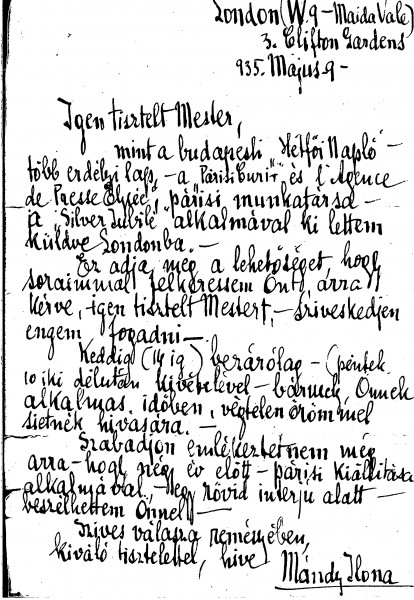 London (W.9 - Maida Vale)
3. Clifton Gardens
935. Május 9 -
Igen tisztelt Mester,
mint a budapesti "Hétfői Napló" -
több erdélyi lap, - a "Párisi Kurir" és l'Agence
de Presse párisi munkatársa -
a "Silver Jubilé" alkalmával ki lettem
küldve Londonba. -
Ez adja meg a lehetőséget, hogy
soraimmal felkeressem Önt, arra
kérve, igen tisztelt Mestert, - sziveskedjen
engem fogadni -
Keddig (14 ig) bezárólag - (péntek
10 iki délután kivételével - bármely, Önnek
alkalmas időben, végtelen örömmel
sietnék hivására. -
Szabadjon emlékeztetnem még
arra - hogy négy év előtt - párisi kiállítása
alkalmával, - egy rövid interju alatt -
beszélhettem Önnel -
Szives válasza reményében,
kiváló tisztelettel, hive
Mándy Ilona